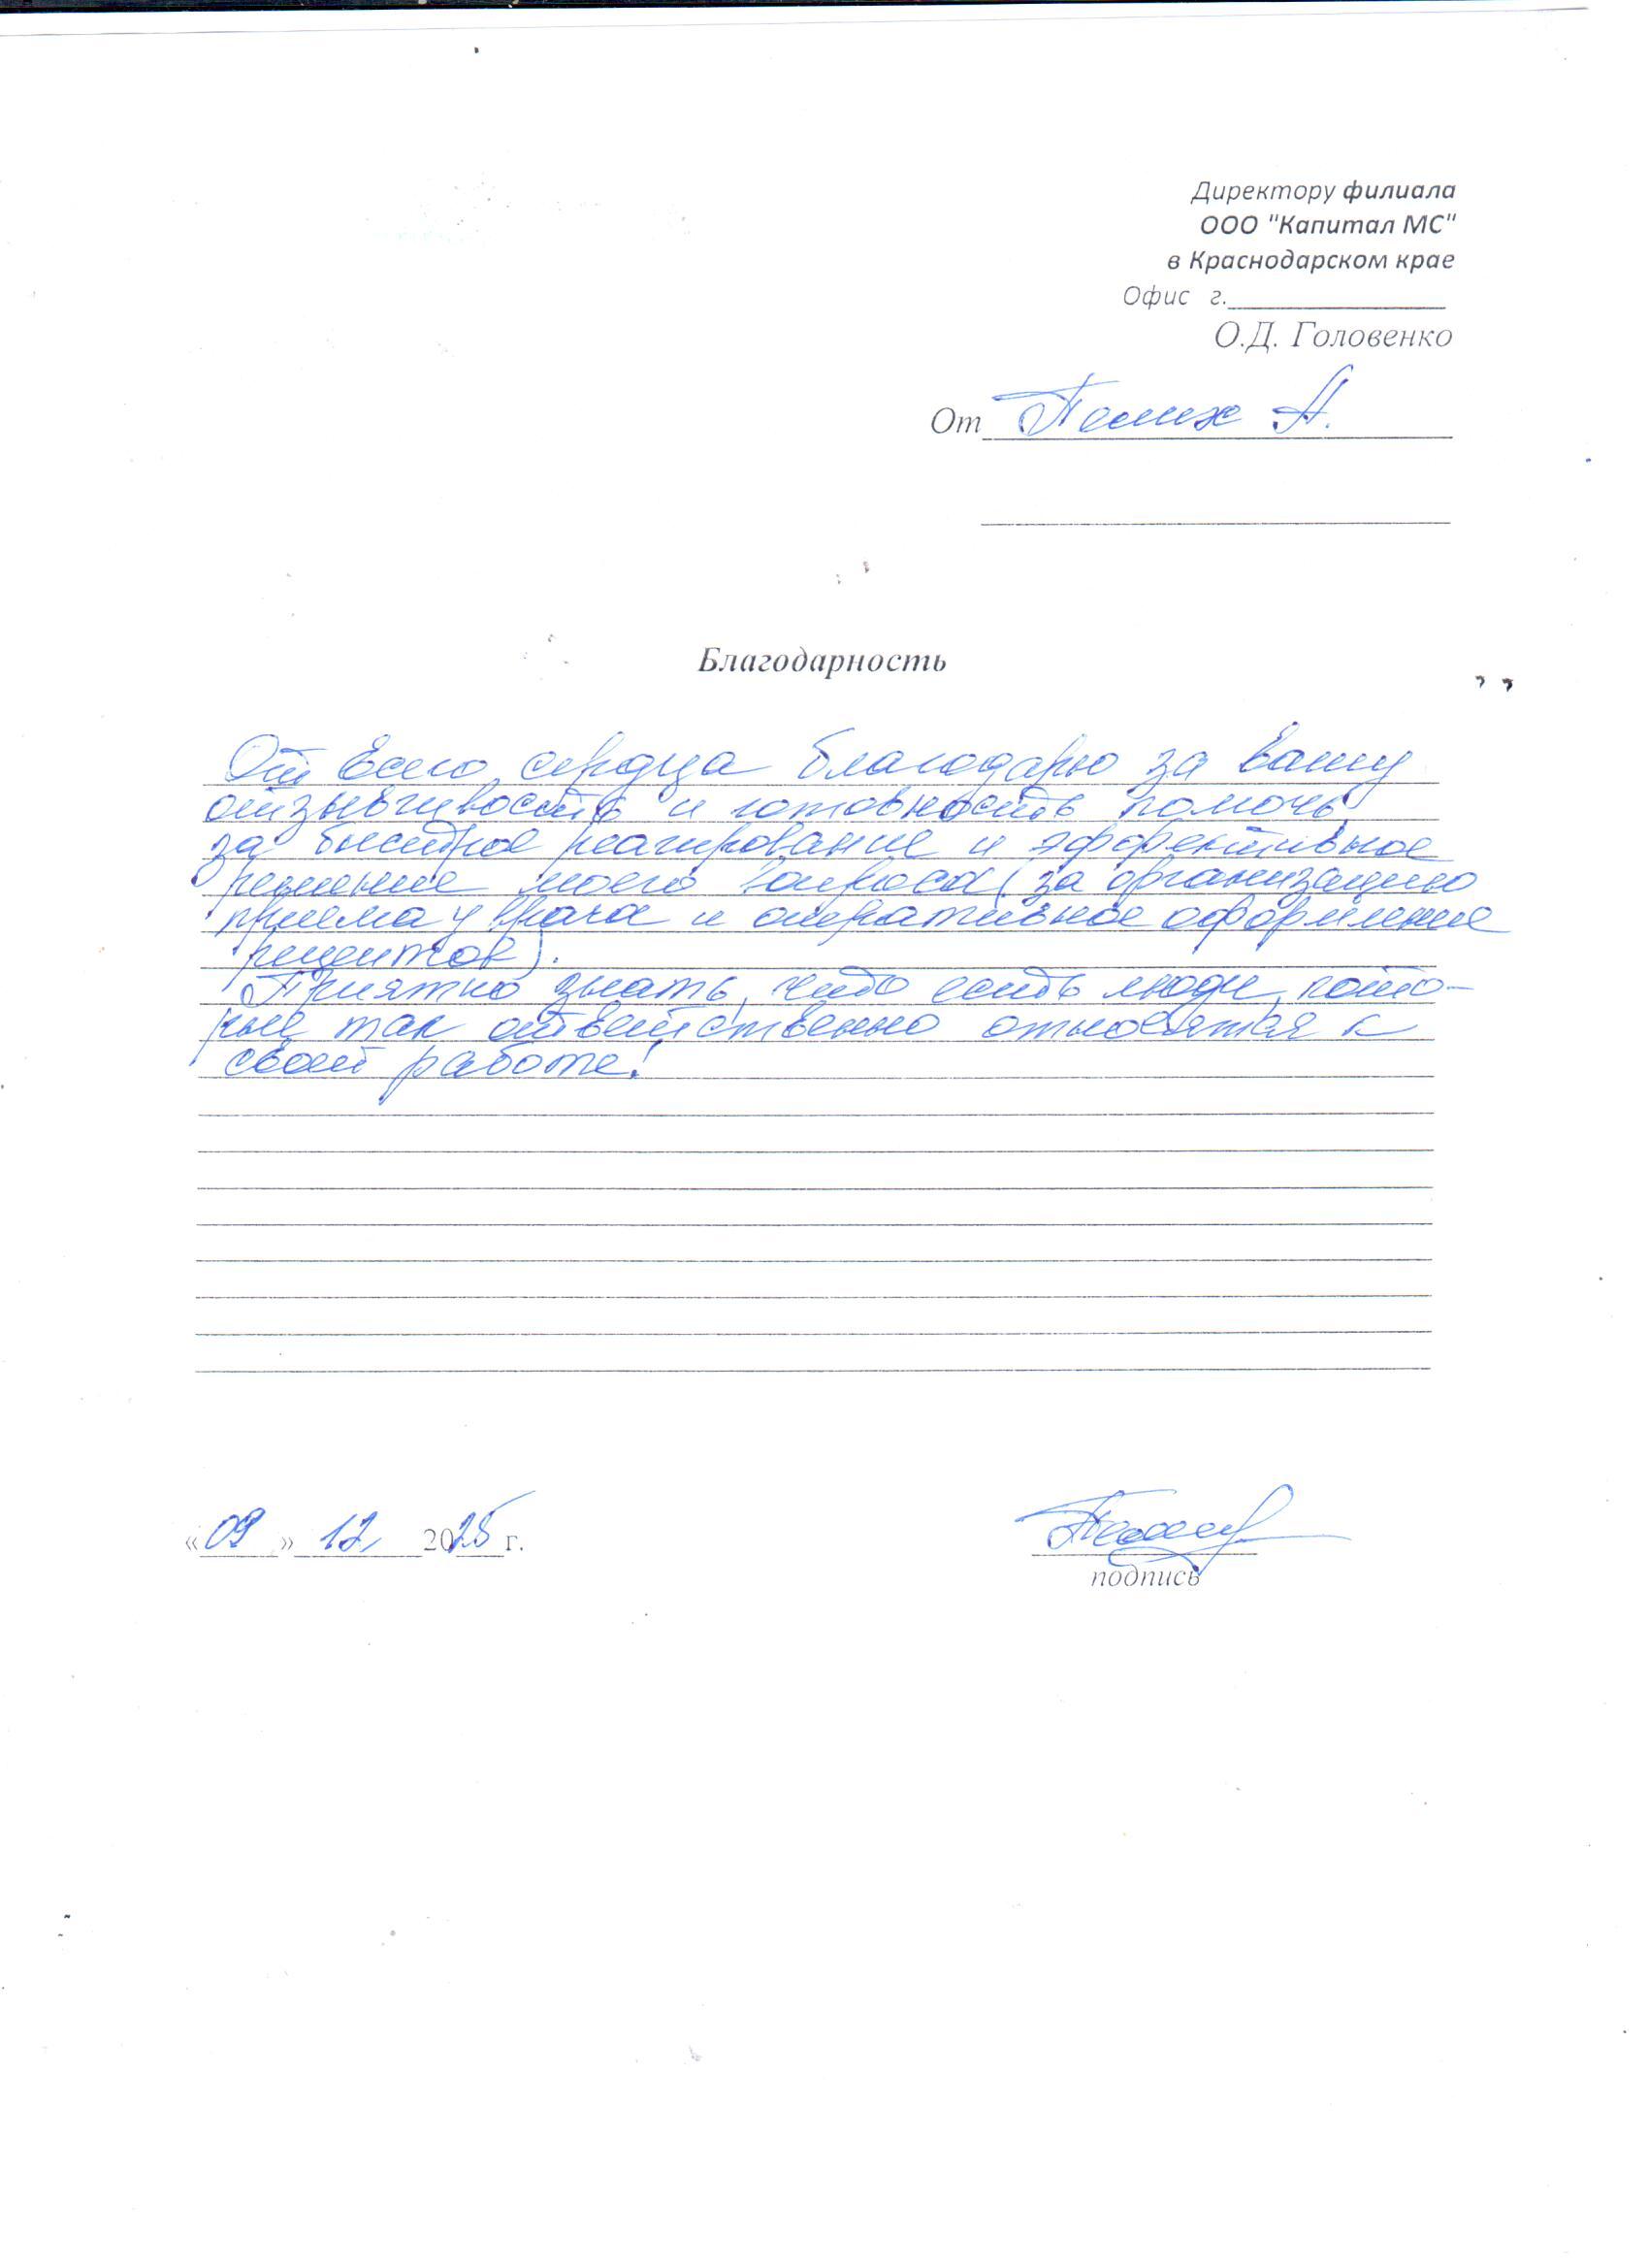 Директору филиала
ООО "Капитал МС"
в Краснодарском крае
Офис г.
О.Д. Головенко
От А.
Благодарность
От всего сердца благодарю за вашу
отзывчивость и готовность помочь,
за быстрое реагирование и эффективное
решение моего вопроса (за организацию
приема у врача и оперативное оформление
рецептов).
Приятно знать, что есть люди, кото-
рые так ответственно относятся к
своей работе!
«09» 12 2025 г.
подпись